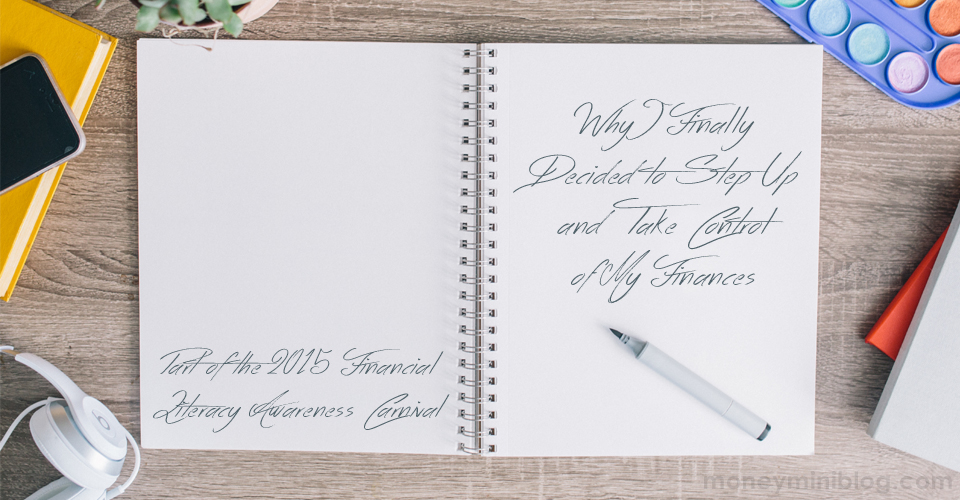 Part of the 2015 Financial
Literacy Awareness Carnival
Why I Finally
Decided to Step Up
and Take Control
of My Finances
moneyminiblog.com